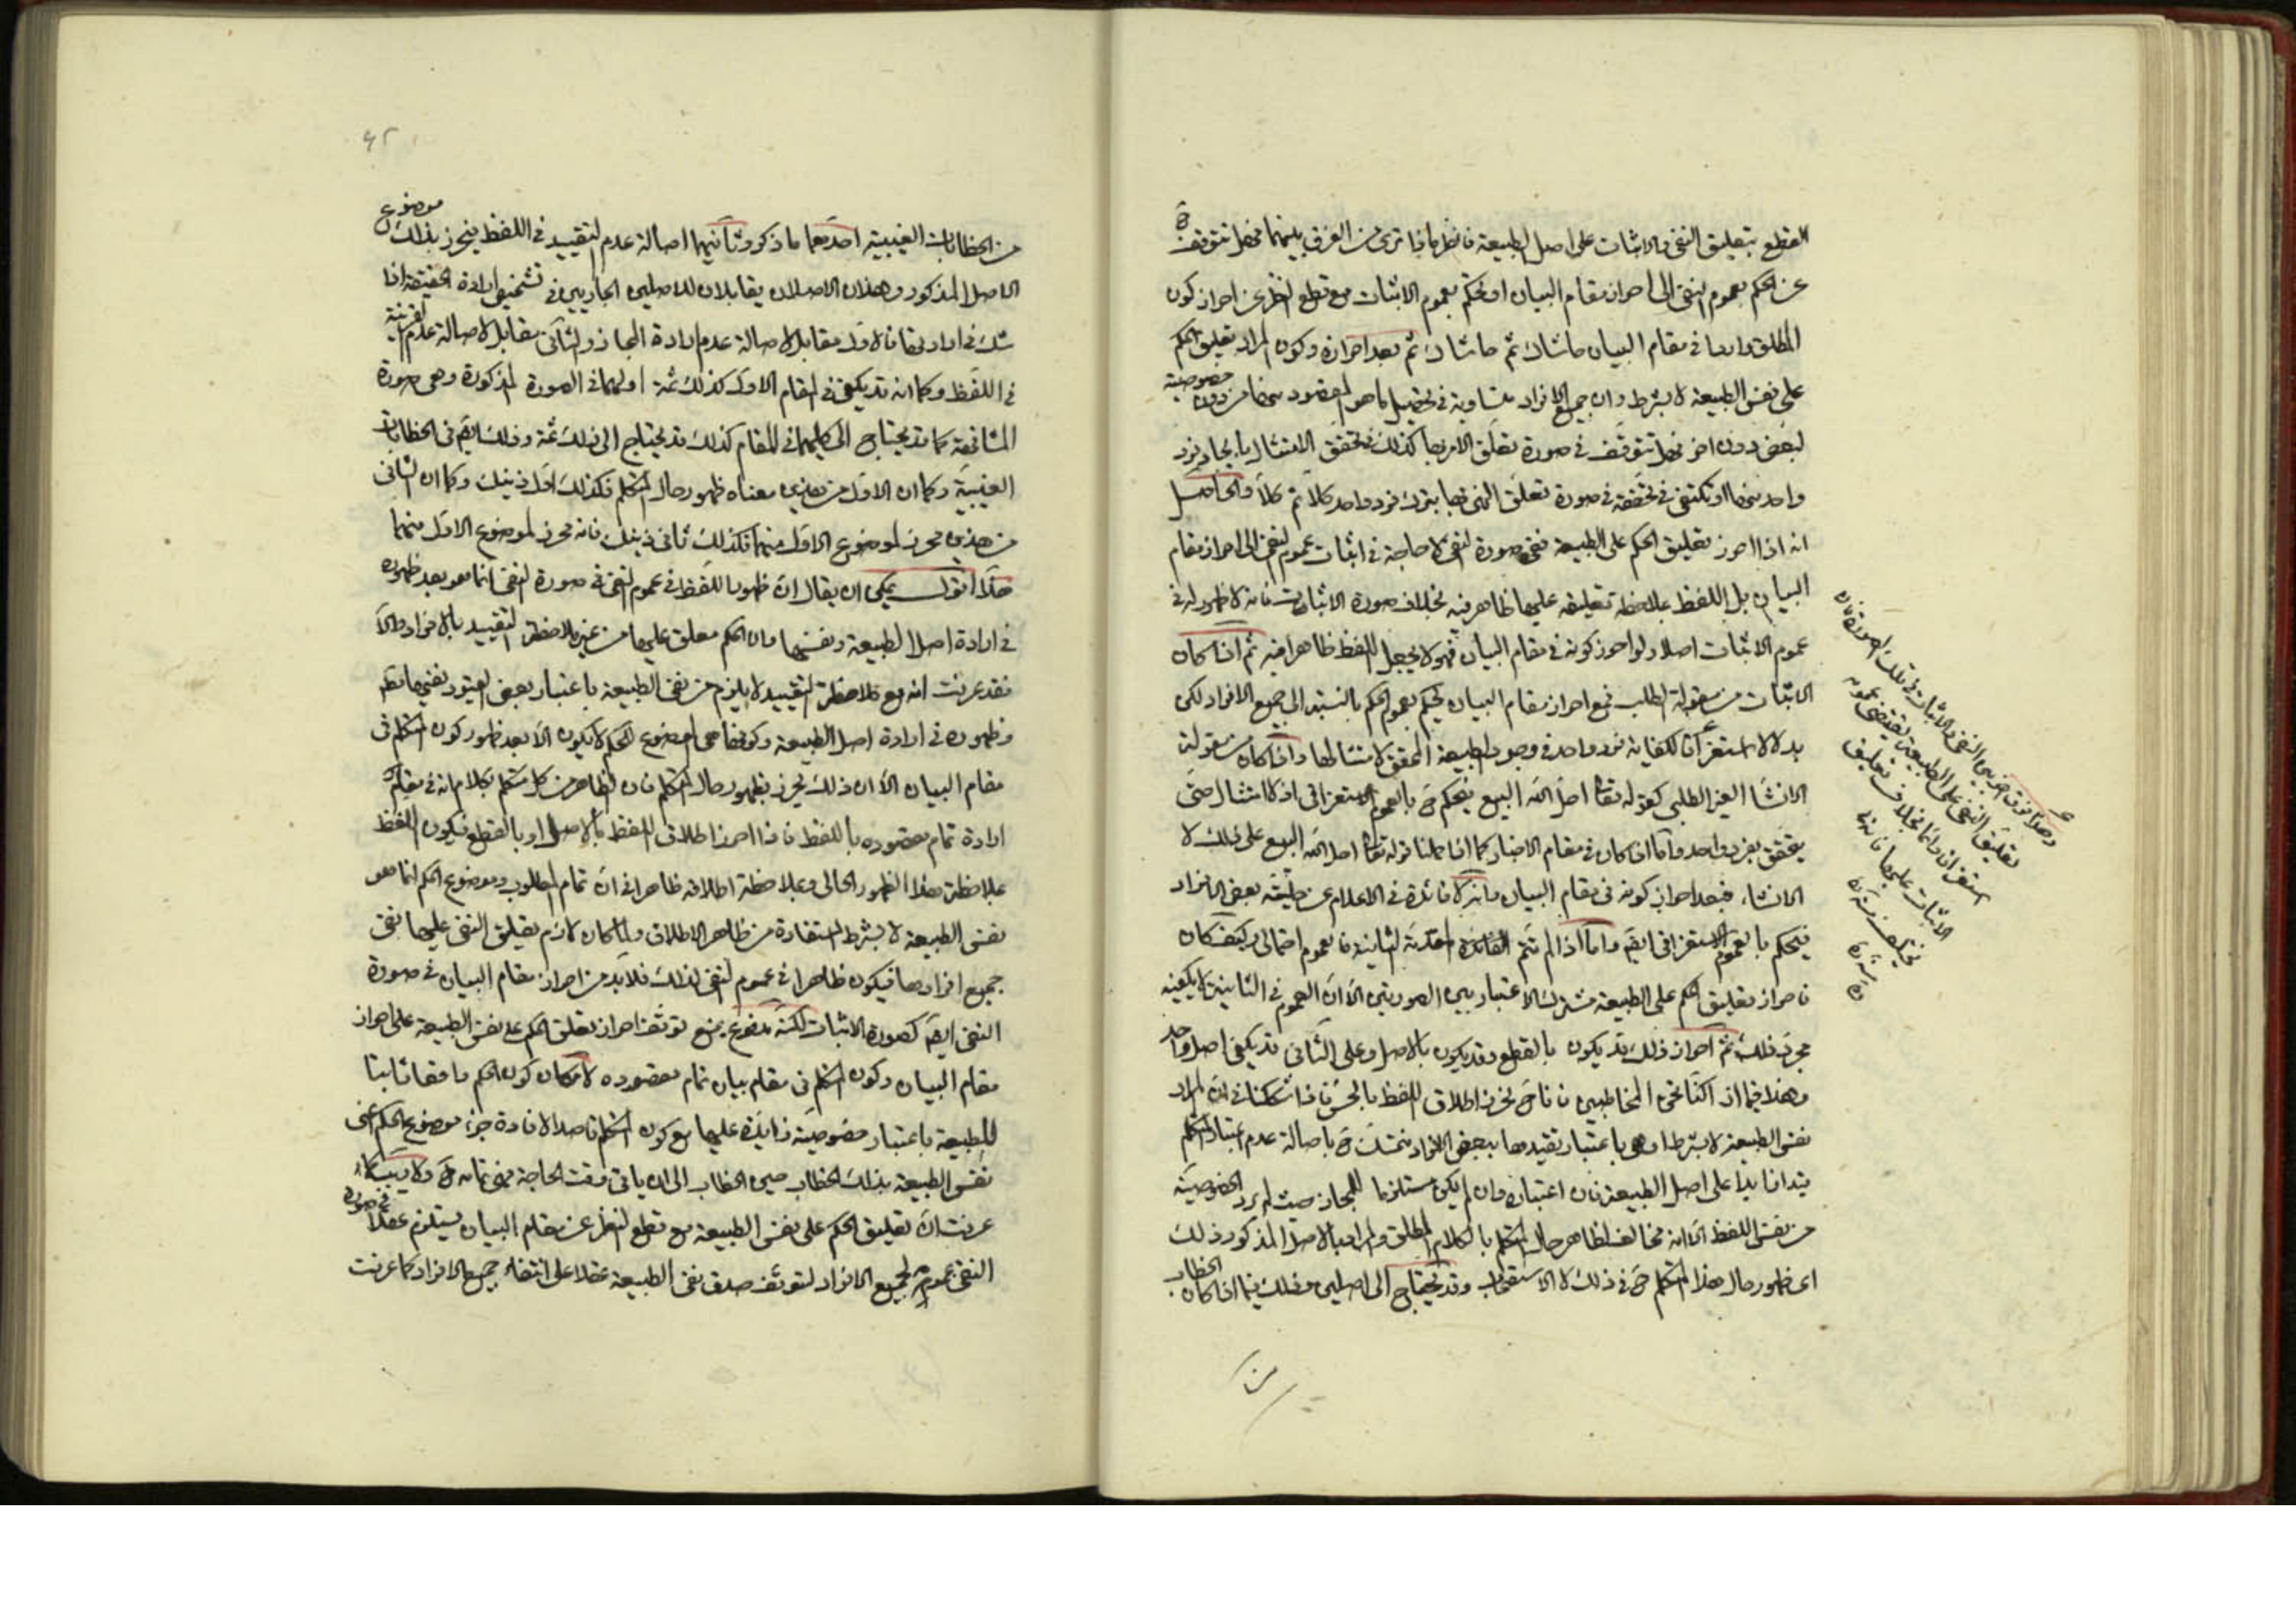 القطع بتعليق النفى والاثبات على اصل الطبيعة فانظر ماذا ترى من الفرق بينهما فهل تتوقف ح
عن الحكم بعموم النفى الى احراز مقام البيان او تحكم بعموم الاثبات مع قطع النظر عن احراز كون
المطلق واردا فى مقام البيان حاشاك ثم حاشاك ثم بعد احرازه وكون المراد تعليق الحكم
على نفس الطبيعة لا بشرط وان جميع الافراد متساوية فى تحصيل ما هو المقصود منها من دون خصوصية
لبعض دون اخر فهل تتوقف فى صورة تعلق الامر بها كذلك فى تحقق الامتثال بايجاد فرد
واحد منها او تكتفى فى تحققه فى صورة تعلق النهى بها بترك فرد واحد كلا ثم كلا والحاصل
انه اذا احرز تعليق الحكم على الطبيعة ففى صورة النفى لا حاجة فى اثبات عموم النفى الى احراز مقام
البيان بل اللفظ بملاحظة تعليقه عليها ظاهر فيه بخلاف صورة الاثبات فانه لا ظهور له فى
عموم الاثبات اصلا ولو احرز كونه فى مقام البيان فهو لا يجعل اللفظ ظاهرا فيه ثم اذا كان
الاثبات من مقولة الطلب فمع احراز مقام البيان يحكم بعموم الحكم بالنسبة الى جميع الافراد لكن
بدلا لا استغراقا لكفاية فرد واحد فى وجود الطبيعة المحقق لامتثالها واذا كان من مقولة
الانشاء الغير الطلبى كقوله تعالى احل الله البيع فيحكم ح بالعموم الاستغراقى اذ لا امتثال حتى
يتحقق بفرد واحد واما اذا كان فى مقام الاخبار كما اذا حملنا قوله تعالى احل الله البيع على ذلك لا
الانشاء فبعد احراز كونه فى مقام البيان وانه لا فائدة فى الاعلام عن حلية بعض الافراد
فيحكم بالعموم الاستغراقى ايضا واما اذا لم تتم المقدمة الثانية فالعموم احتمالى وكيف كان
فاحراز تعليق الحكم على الطبيعة مشترك الاعتبار بين الصورتين الا ان العموم فى الثانية لا يكفيه
مجرد ذلك ثم احراز ذلك قد يكون بالقطع وقد يكون بالاصل وعلى الثانى قد يكفى اصل واحد
وهذا فيما اذا كنا نحن المخاطبين فانا ح نحرز اطلاق اللفظ بالحس فاذا شككنا فى ان المراد
نفس الطبيعة لا بشرط او هى باعتبار تقيدها ببعض الافراد فنتمسك ح باصالة عدم اعتبار المتكلم
قيدا زايدا على اصل الطبيعة فان اعتباره وان لم يكن مستلزما للمجاز حيث لم يرد الخصوصية
من نفس اللفظ الا انه مخالف لظاهر حال المتكلم بالكلام المطلق والمراد بالاصل المذكور ذلك
اى ظهور حال هذا المتكلم ح فى ذلك لا الاستصحاب وقد يحتاج الى اصلين وذلك فيما اذا كان الخطاب
من
وهذا فرق اخر بين النفى والاثبات فى تلك الصورة فان
تعليق النفى على الطبيعة يقتضى عمومه
استغراقا دائما بخلاف تعليق
الاثبات عليها فانه
يختلف
٤٢
من الخطابات الغيبية احدهما ما ذكر وثانيهما اصالة عدم التقييد فى اللفظ فيحرز بذلك موضوع
الاصل المذكور وهذان الاصلان يقابلان للاصلين الجاريين فى تشخيص ارادة الحقيقة اذا
شك فى ارادتها فالاول مقابل لاصالة عدم ارادة المجاز والثانى مقابل لاصالة عدم القرينة
فى اللفظ وكما انه قد يكفى فى المقام الاول كذلك ثمة اولهما فى الصورة المذكورة وهى صورة
المشافهة كما قد يحتاج الى كليهما فى المقام كذلك قد يحتاج الى ذلك ثمة وذلك ايضا فى الخطابات
الغيبية وكما ان الاول من هذين معناه ظهور حال المتكلم فكذلك اول ذينك وكما ان الثانى
من هذين محرز لموضوع الاول منهما فكذلك ثانى ذينك فانه محرز لموضوع الاول منهما
هذا اقول يمكن ان يقال ان ظهور اللفظ فى عموم النفى فى صورة النفى انما هو بعد ظهوره
فى ارادة اصل الطبيعة ونفسها وان الحكم معلق عليها من غير ملاحظة التقييد بالافراد والا
فقد عرفت انه مع ملاحظة التقييد لا يلزم من نفى الطبيعة باعتبار بعض القيود نفيها مطلقا
وظهوره فى ارادة اصل الطبيعة وكونها هى موضوع الحكم لا يكون الا بعد ظهور كون المتكلم فى
مقام البيان الا ان ذلك يحرز بظهور حال المتكلم فان الظاهر من كل متكلم بكلام انه فى مقام
ارادة تمام مقصوده باللفظ فاذا احرز اطلاق اللفظ بالاصل او بالقطع فيكون اللفظ
بملاحظة هذا الظهور الحالى وبملاحظة اطلاقه ظاهرا فى ان تمام المطلوب وموضوع الحكم انما هو
نفس الطبيعة لا بشرط المستفادة من ظاهر الاطلاق ولما كان لازم تعليق النفى عليها نفى
جميع افرادها فيكون ظاهرا فى عموم النفى لذلك فلا بد من احراز مقام البيان فى صورة
النفى ايضا كصورة الاثبات لكنه مدفوع بمنع توقف احراز تعلق الحكم على نفس الطبيعة على احراز
مقام البيان وكون المتكلم فى مقام بيان تمام مقصوده لامكان كون الحكم واقعا ثابتا
للطبيعة باعتبار خصوصية زايدة عليها مع كون المتكلم قاصدا لافادة جزء موضوع الحكم اعنى
نفس الطبيعة بذلك الخطاب حين الخطاب الى ان ياتى وقت الحاجة
عرفت ان تعليق الحكم على نفس الطبيعة مع قطع النظر عن مقام البيان يستلزم عقلا فى صورة
النفى عمومه لجميع الافراد لتوقف صدق نفى الطبيعة عقلا على انتفاء جميع الافراد كما عرفت